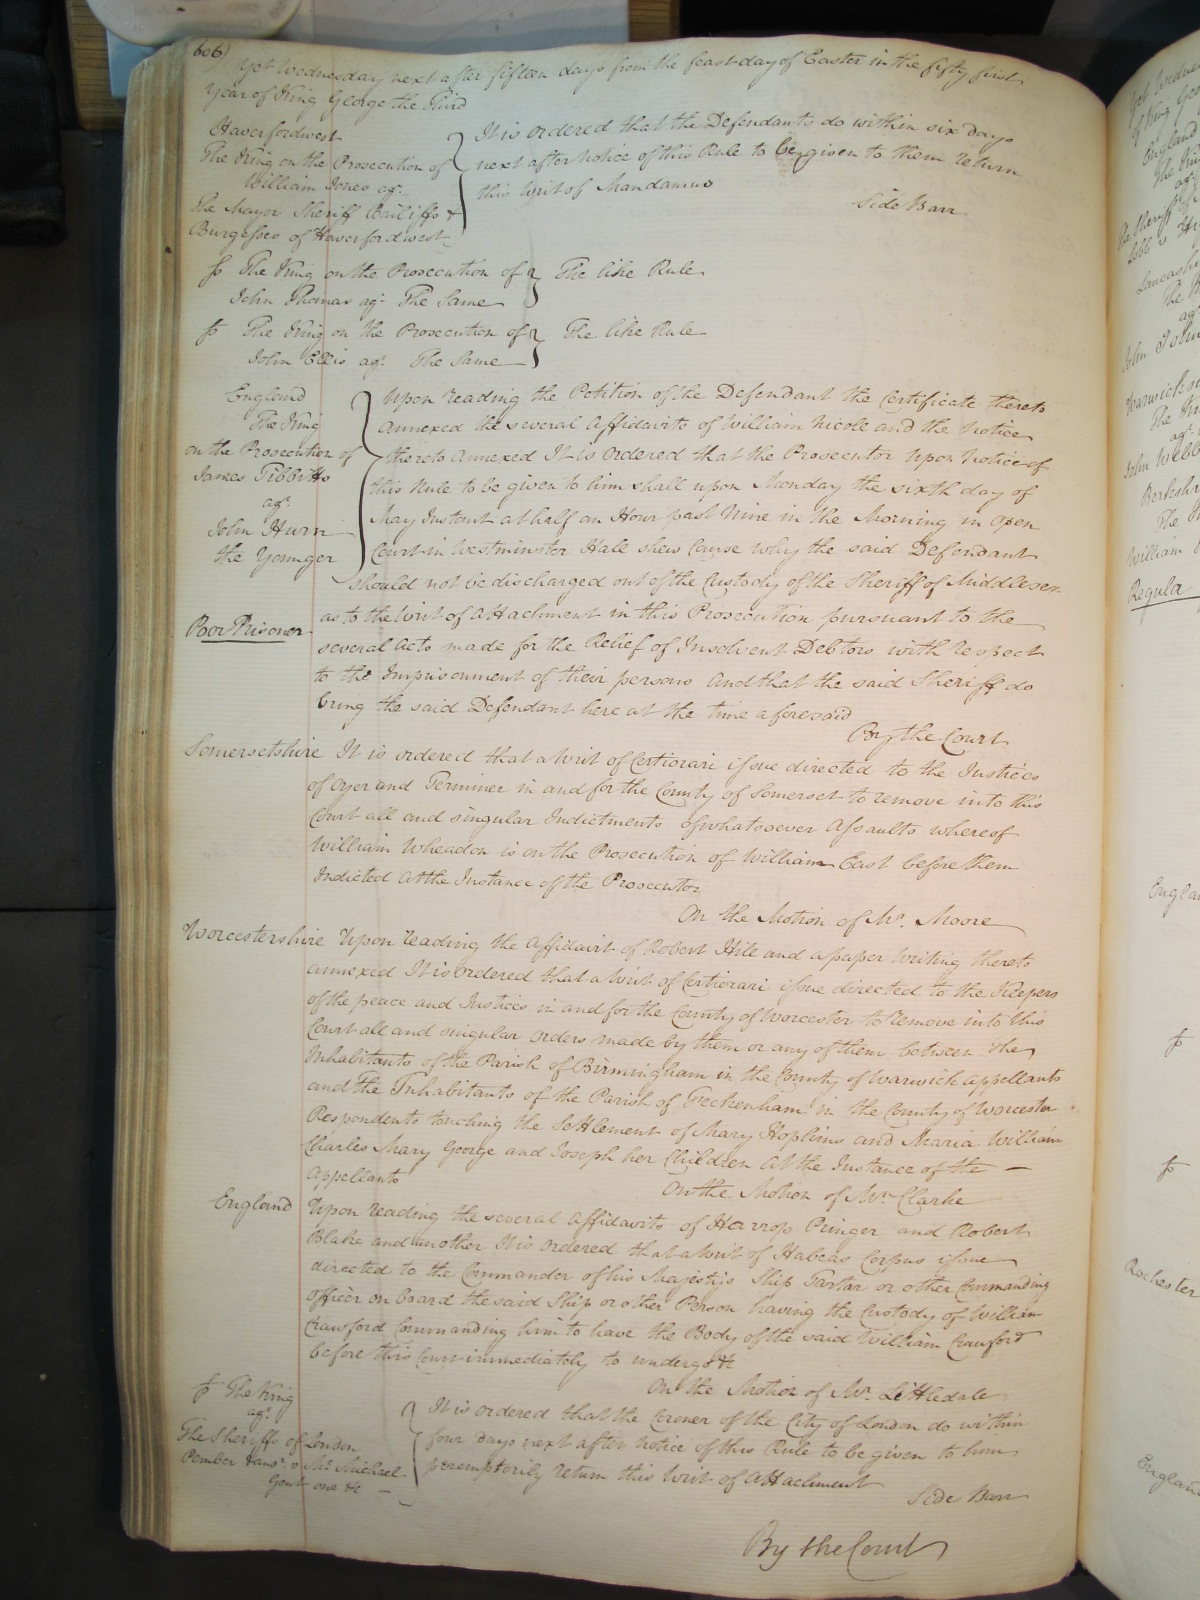 606)
Yet Wednesday next after fifteen days from the feast day of Easter in the fifty first
Year of King George the Third
Haverfordwest
The King on the Prosecution of
William Jones agt.
The Mayor Sheriff Bailiffs &
Burgesses of Haverfordwest
It is ordered that the Defendants do within six days
next after Notice of this Rule to be given to them return
this Writ of Mandamus
Side Barr
fo The King on the Prosecution of
John Thomas agt. The Same
The like Rule
fo The King on the Prosecution of
John Ellis agt. The Same
The like Rule
England
The King
on the Prosecution of
James Tibbitts
agt.
John Hurn
the Younger
Poor Prisoner
Upon reading the Petition of the Defendant the Certificate thereto
annexed the several Affidavits of William Nicole and the Notice
thereto annexed It is Ordered that the Prosecutor upon Notice of
this Rule to be given to him shall upon Monday the sixth day of
May Instant at half an Hour past Nine in the Morning in open
Court in Westminster Hall shew Cause why the said Defendant
should not be discharged out of the Custody of the Sheriff of Middlesex
as to the Writ of Attachment in this Prosecution pursuant to the
several Acts made for the Relief of Insolvent Debtors with respect
to the Imprisonment of their persons And that the said Sheriff do
bring the said Defendant here at the time aforesaid
By the Court
Somersetshire It is ordered that a Writ of Certiorari issue directed to the Justices
of Oyer and Terminer in and for the County of Somerset to remove into this
Court all and singular Indictments of whatsoever Assaults whereof
William Wheadon is on the Prosecution of William East before them
Indicted At the Instance of the Prosecutor
On the Motion of Mr. Moore
Worcestershire Upon reading the Affidavit of Robert Hill and a paper Writing thereto
annexed It is Ordered that a Writ of Certiorari issue directed to the Keepers
of the peace and Justices in and for the County of Worcester to remove into this
Court all and singular Orders made by them or any of them between the
Inhabitants of the Parish of Birmingham in the County of Warwick Appellants
and the Inhabitants of the Parish of Feckenham in the County of Worcester
Respondents touching the Settlement of Mary Hopkins and Maria William
Charles Mary George and Joseph her Children At the Instance of the
Appellants
On the Motion of Mr. Clarke
England Upon reading the several Affidavits of Pringer and Robert
Blake and another It is Ordered that a Writ of Habeas Corpus issue
directed to the Commander of his Majesty's Ship Tartar or other Commanding
Officer on board the said Ship or other Person having the Custody of William
Crawford Commanding him to have the Body of the said William Crawford
before this Court immediately to undergo &c
On the Motion of Mr. Littledale
fo The King
agt.
The Sheriffs of London
Pember v Mc Michael
Gent one &c
It is ordered that the Coroner of the City of London do within
four days next after Notice of this Rule to be given to him
peremptorily return this Writ of Attachment
Side Barr
By the Court